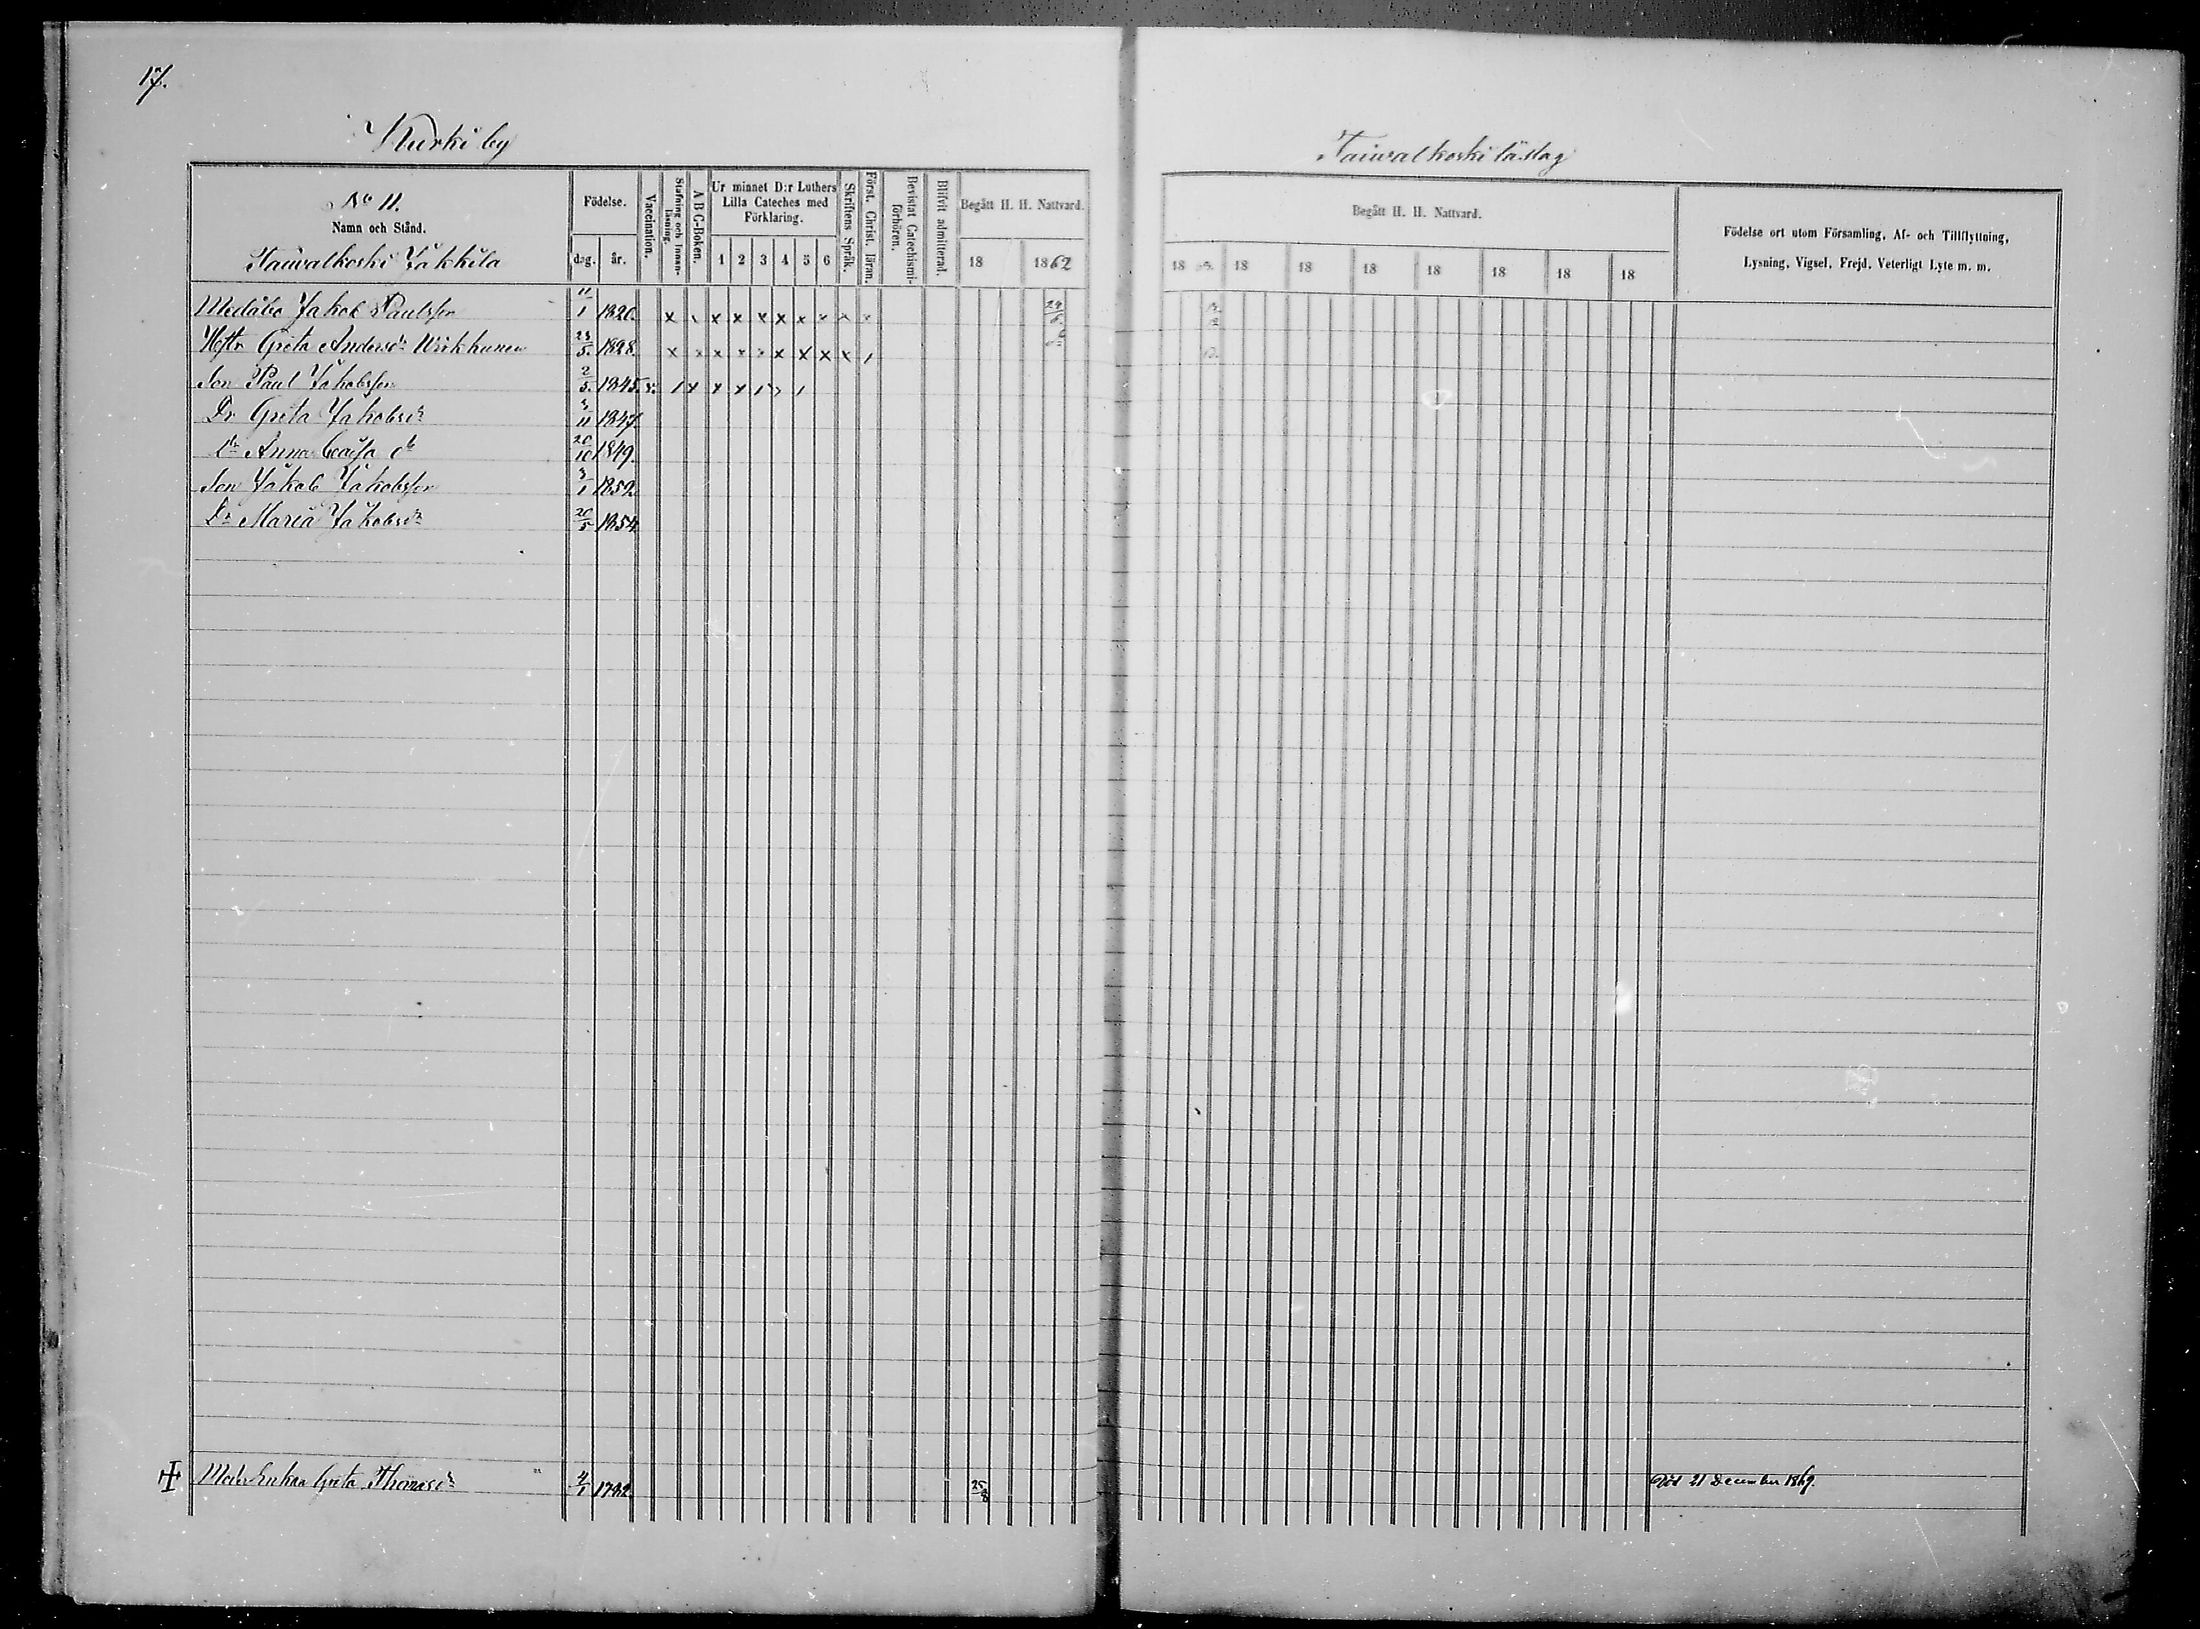 17.
Kurki by
Taiwalkoski läslag
No 11.
Namn och Stånd.
Taiwalkoski Jakkila
Födelse.
dag. år.
Vaccination.
Stafning och Innan-
läsning.
A B C-Boken.
Ur minnet D:r Luthers
Lilla Cateches med
Förklaring.
1 2 3 4 5 6
Skriftens Språk.
Först. Christ. läran.
Bevistat Catechismi-
förhören.
Blifvit admitterad.
Begått H. H. Nattvard.
18 1862
Begått H. H. Nattvard.
18 18 18 18 18 18 18 18
Födelse ort utom Församling, Af- och Tillflyttning,
Lysning, Vigsel, Frejd, Veterligt Lyte m. m.
Jakob Paulsson 11/1 1820. x x x x x x
Hstr Greta Andersdr Wirkkunen 23/5. 1828. x x x x x x
Son Paul Jakobsson 2/5. 1845. x x x
Dr Greta Jakobsdr 1847.
Dr Anna Caisa do 20/10 1849.
Son Jakob Jakobsson 3/1 1852.
Dr Maria Jakobsdr 20/5 1854.
Enkan Greta Thomasdr 4/1 25/8 Död 21 December 1869.